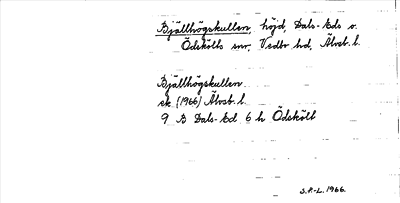 Bjällhögskullen, höjd, Dals-Eds o.
Ödskölts snr, Vedbo hd, Älvsb. l.
Bjällhögskullen
ek (1966) Älvsb. l.
9 B Dals-Ed 6 h Ödskölt
S.F-L. 1966.